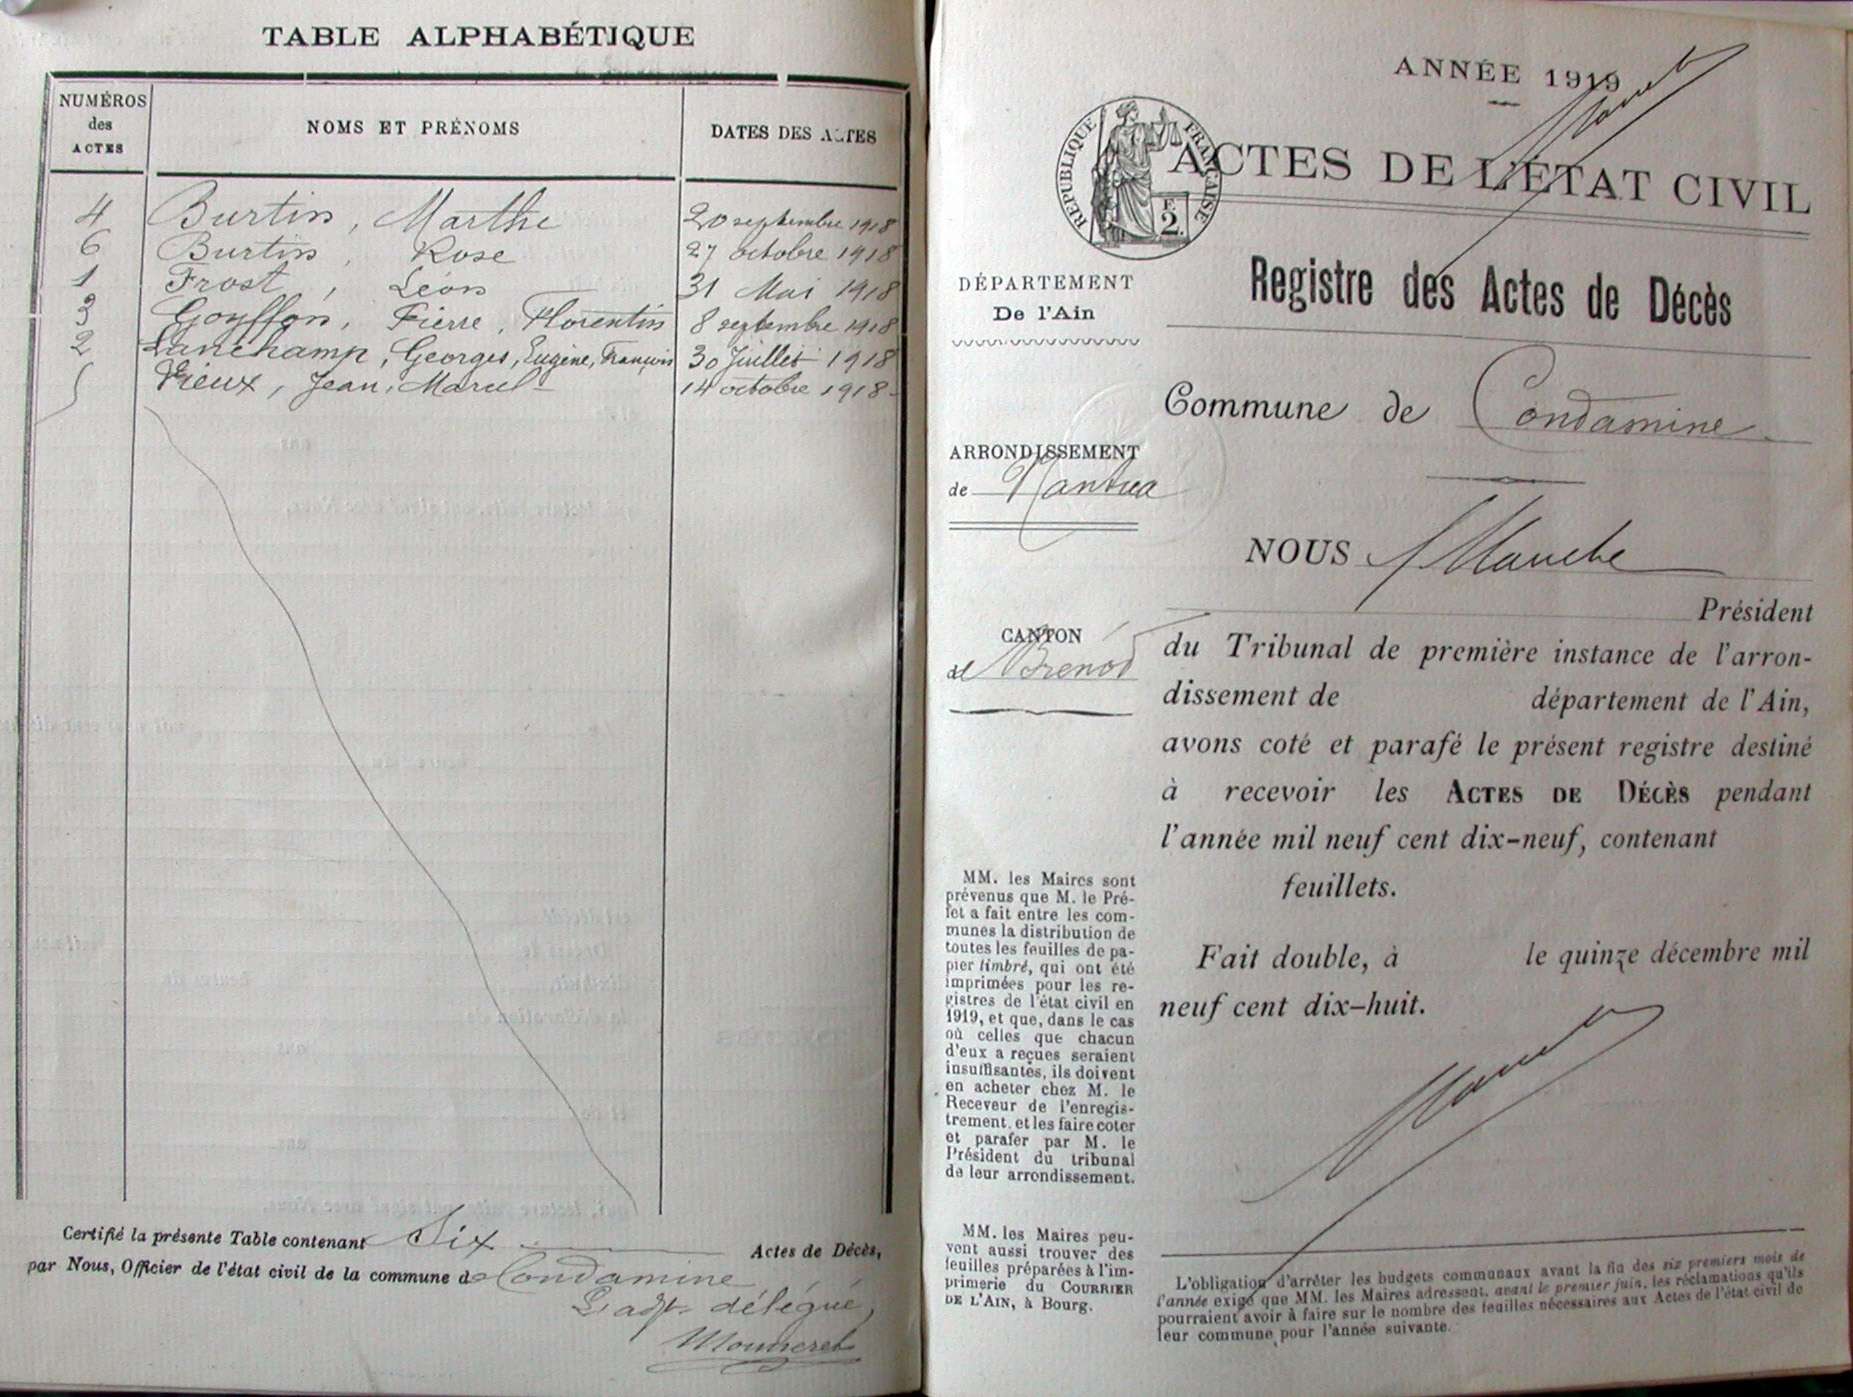 TABLE ALPHABÉTIQUE
NUMÉROS
des
ACTES
NOMS ET PRÉNOMS
DATES DES ACTES
4 Burtin, Marthe 20 septembre 1918
6 Burtin, Rose 27 octobre 1918
1 Frost, Léon 31 Mai 1918
3 Goyffon, Pierre, Florentin 8 septembre 1918
2 Lanchamp, Georges, Eugène, François 30 Juillet 1918
5 Vieux, Jean, Marcel 14 octobre 1918
Certifié la présente Table contenant Six Actes de Décès,
par Nous, Officier de l'état civil de la commune de Condamine
L'adjt délégué,
Monneret
ANNÉE 1919
RÉPUBLIQUE FRANÇAISE
F.
2.
ACTES DE L'ÉTAT CIVIL
Registre des Actes de Décès
DÉPARTEMENT
De l'Ain
Commune de Condamine
ARRONDISSEMENT
de Nantua
NOUS
Président
CANTON
de Brenod
du Tribunal de première instance de l'arron-
dissement de département de l'Ain,
avons coté et parafé le présent registre destiné
à recevoir les ACTES DE DÉCÈS pendant
l'année mil neuf cent dix-neuf, contenant
feuillets.
Fait double, à le quinze décembre mil
neuf cent dix-huit.
MM. les Maires sont
prévenus que M. le Pré-
fet a fait entre les com-
munes la distribution de
toutes les feuilles de pa-
pier timbré, qui ont été
imprimées pour les re-
gistres de l'état civil en
1919, et que, dans le cas
où celles que chacun
d'eux a reçues seraient
insuffisantes, ils doivent
en acheter chez M. le
Receveur de l'enregis-
trement, et les faire coter
et parafer par M. le
Président du tribunal
de leur arrondissement.
MM. les Maires peu-
vent aussi trouver des
feuilles préparées à l'im-
primerie du COURRIER
DE L'AIN, à Bourg.
L'obligation d'arrêter les budgets communaux avant la fin des six premiers mois de
l'année exige que MM. les Maires adressent, avant le premier juin, les réclamations qu'ils
pourraient avoir à faire sur le nombre des feuilles nécessaires aux Actes de l'état civil de
leur commune pour l'année suivante.